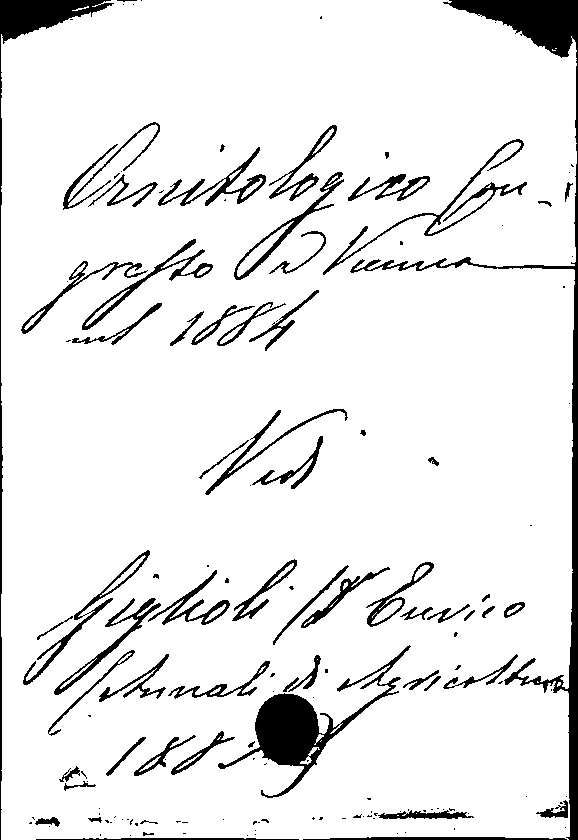 Ornitologico Con-
gresso a Vienna
nel 1884
Vedi
Giglioli Dr Enrico
(Annali di Agricoltura
188